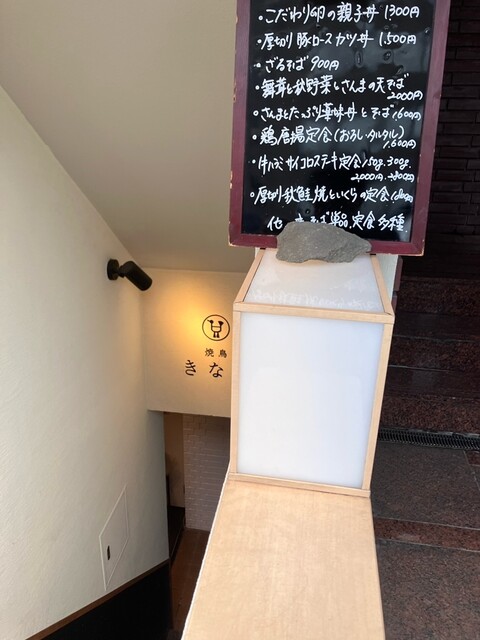 ・こだわり卵の親子丼 1300円
・厚切り豚ロースカツ丼 1.500円
・ざるそば 900円
・舞茸と秋野菜とさんまの天そば
2000円
・さんまとたっぷり薬味丼とそば 1,600円
・鶏唐揚定食(おろし・タルタル)
1,600円
・牛ハラミサイコロステーキ定食 150g.300g.
2,000円.
・厚切り秋鮭焼といくらの定食
他 そば 単品、定食多種
焼鳥
きな